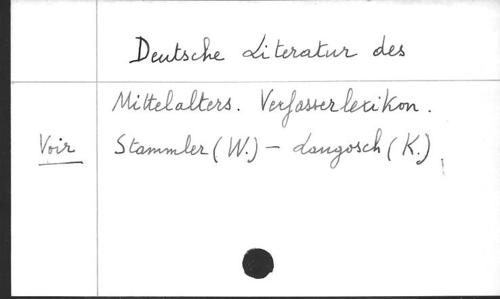 Deutsche Literatur des
Mittelalters. Verfasserlexikon.
Voir Stammler (W.) - Langosch (K.)